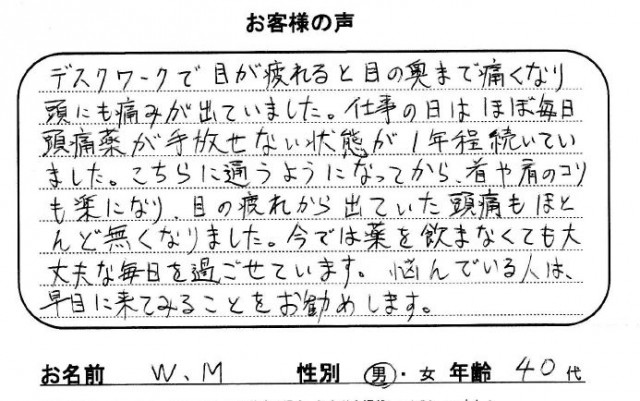 お客様の声
デスクワークで目が疲れると目の奥まで痛くなり
頭にも痛みが出ていました。仕事の日はほぼ毎日
頭痛薬が手放せない状態が1年程続いてい
ました。こちらに通うようになってから、首や肩のコリ
も楽になり、目の疲れから出ていた頭痛もほと
んど無くなりました。今では薬を飲まなくても大
丈夫な毎日を過ごせています。悩んでいる人は、
早目に来てみることをお勧めします。
お名前 W、M 性別 男・女 年齢 40代